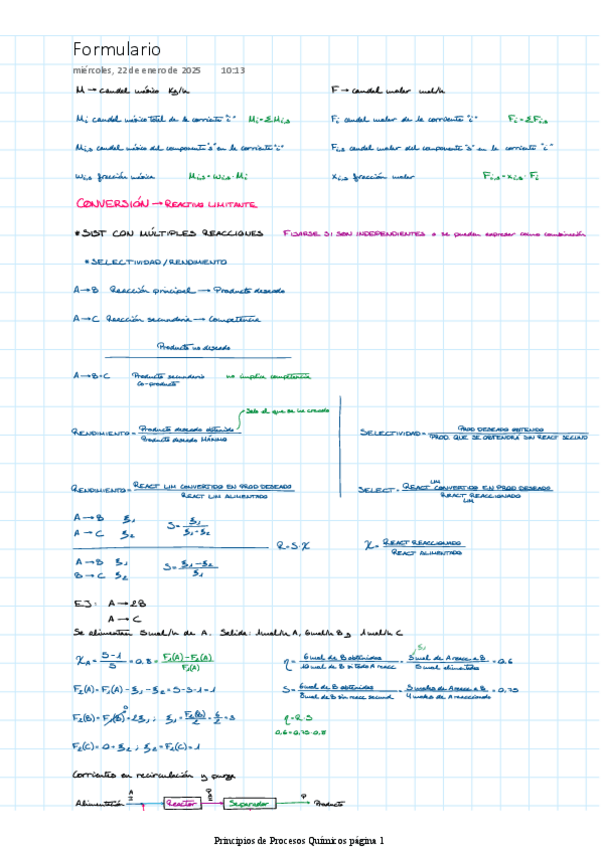 Formulario
miércoles, 22 de enero de 2025 10:13
M → caudal másico kg/h F → caudal molar mol/h
Mi caudal másico total de la corriente "i" Mi=ΣMi,s Fi caudal molar de la corriente "i" Fi=ΣFi,s
Mi,s caudal másico del componente "s" en la corriente "i" Fi,s caudal molar del componente "s" en la corriente "i"
wi,s fracción másica Mi,s=wi,s·Mi xi,s fracción molar Fi,s=xi,s·Fi
CONVERSIÓN → REACTIVO LIMITANTE
*SIST CON MÚLTIPLES REACCIONES FIJARSE SI SON INDEPENDIENTES o se pueden expresar como combinación
*SELECTIVIDAD/RENDIMIENTO
A→B Reacción principal → Producto deseado
A→C Reacción secundaria → Competencia
Producto no deseado
A→B+C Producto secundario no implica competencia
Co-producto
Solo el que se ha creado
RENDIMIENTO= Producto deseado obtenido / Producto deseado Máximo SELECTIVIDAD= PROD DESEADO OBTENIDO / PROD. QUE SE OBTENDRÍA SIN REACT SECUND
RENDIMIENTO= REACT LIM CONVERTIDO EN PROD DESEADO / REACT LIM ALIMENTADO SELECT.= REACT LIM CONVERTIDO EN PROD DESEADO / REACT LIM REACCIONADO
A→B ξ1 S= ξ1 / ξ1+ξ2
A→C ξ2
R=S·X X= REACT REACCIONADO / REACT ALIMENTADO
A→B ξ1 S= ξ1-ξ2 / ξ1
B→C ξ2
EJ: A→2B
A→C
Se alimentan 5mol/h de A. Salida: 1mol/h A, 6mol/h B y 1mol/h C
XA= 5-1 / 5 =0.8= F1(A)-F2(A) / F1(A) η= 6 mol de B obtenidos / 10 mol de B si todo A reacc = 3 mol de A reacc a B / 5 mol alimentados =0.6
F2(A)=F1(A)-ξ1-ξ2=5-3-1=1 S= 6 mol de B obtenidos / 8 mol de B sin reacc second = 3 moles de A reacc a B / 4 moles de A reaccionado =0.75
F2(B)=F1(B)+2ξ1; ξ1= F2(B) / 2 = 6 / 2 =3 η=X·S
0.6=0.75·0.8
F2(C)=0+ξ2; ξ2=F2(C)=1
Corrientes en recirculación y purga
Alimentación Reactor Separador P Producto
Principios de Procesos Químicos página 1